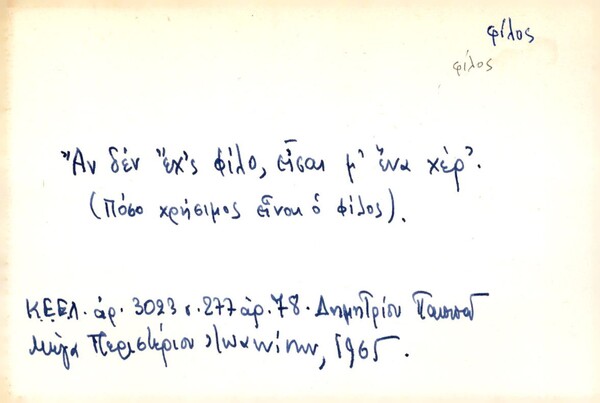 φίλος
φίλος
Ἄν δέν ἔχ'ς φίλο, εἶσαι μ' ἕνα χέρ'.
(Πόσο χρήσιμος εἶναι ὁ φίλος).
Κ.Ε.Ε.Λ. ἀρ. 3023 σ. 277 ἀρ. 78. Δημητρίου Παππᾶ
Περιστέριον Ἰωαννίνων, 1965.